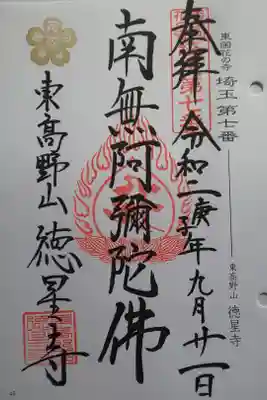 東国花の寺
埼玉 第七番
東高野山 徳星寺
奉拝 令和二庚子年九月廿一日
南無阿彌陀佛
東髙野山 徳星寺